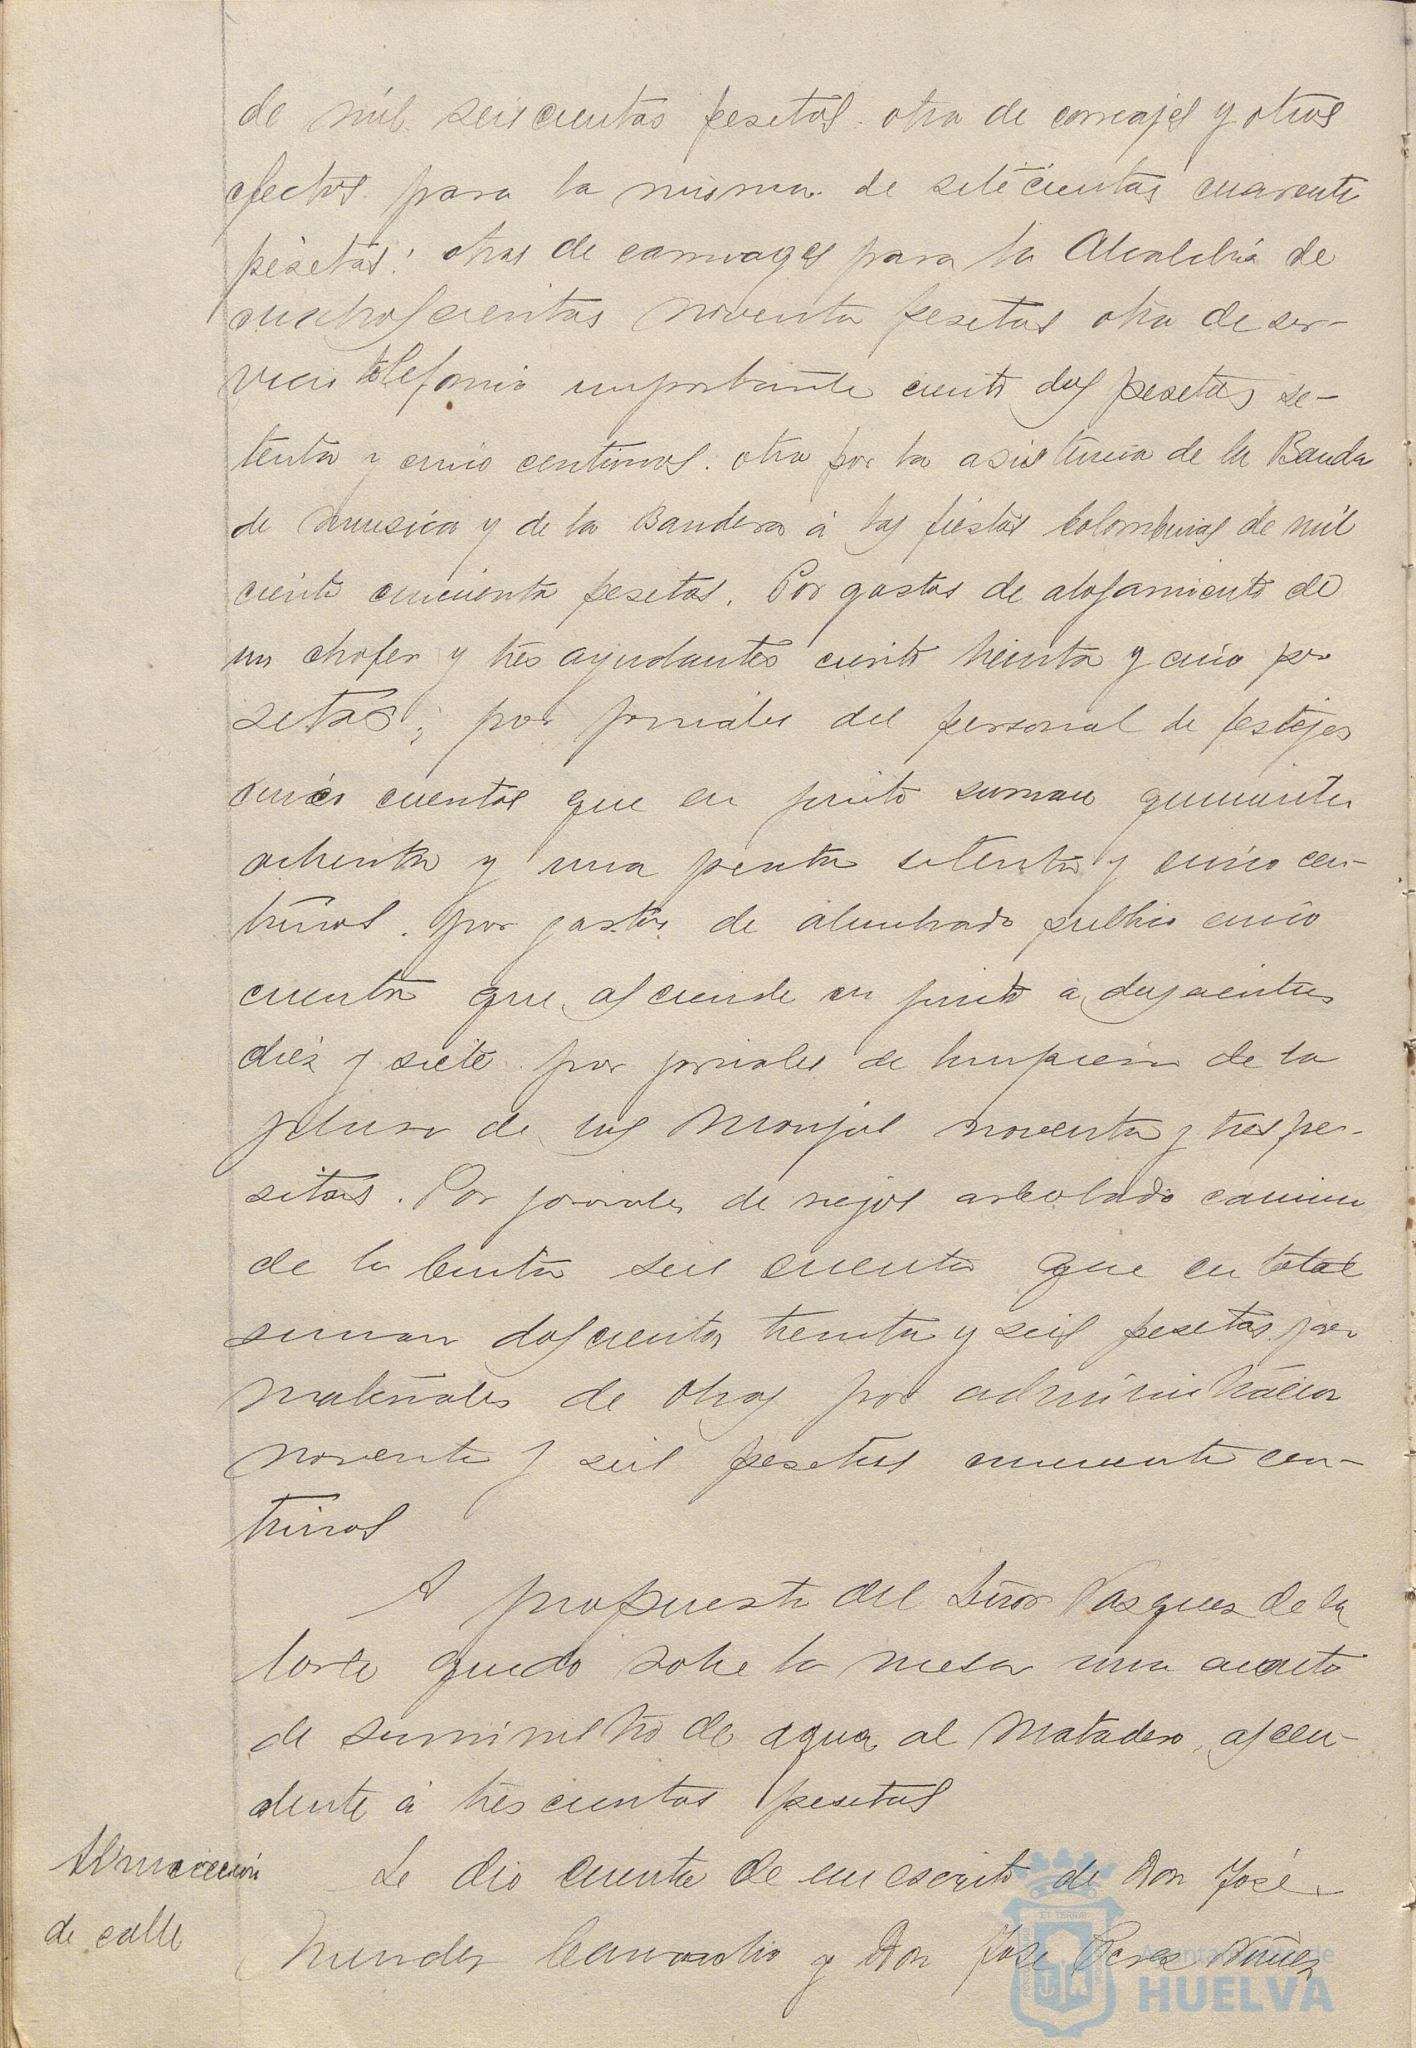 de mil seiscientas pesetas. otra de correajes y otros
efectos para la misma de setecientas cuarenta
pesetas: otras de carruages para la Alcaldía de
cuatroscientas noventa pesetas otra de ser-
vicio telefonico importante ciento dos pesetas se-
tenta y cinco centimos. otra por la asistencia de la Banda
de musica y de la Bandera á las fiestas Colombinas de mil
ciento cincuenta pesetas. Por gastos de alojamiento de
un chofer y tres ayudantes ciento treinta y cinco pe
setas; por jornales del personal de festejos
cinco cuentas que en junto suman quinientas
ochenta y una peseta setenta y cinco cen-
timos. por gastos de alumbrado publico cinco
cuentas que asciende en junto a doscientas
diez y siete. por jornales de limpieza de la
plaza de las Monjas noventa y tres pe-
setas. Por jornales de riegos arbolado camino
de la Cinta seis cuentas que en total
suman doscientas treinta y seis pesetas por
materiales de obras por administracion
noventa y seis pesetas cincuenta cen-
timos
A propuesta del Señor Vasquez de la
Torre quedo sobre la mesa una cuenta
de suministro de agua al Matadero, ascen-
dente á trescientas pesetas
Alineación
de calle
Se dio cuenta de un escrito de Don José
y Don Jose Perez Nuñez
Ayuntamiento de
HUELVA